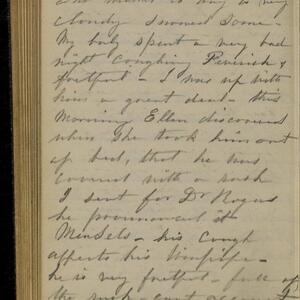 cloudy snowed some -
My baby spent a very bad
night coughing Feverish &
fretful - I was up with
him a great deal - this
Morning Ellen discovered
when she took him out
of bed, that he was
covered with a rash
I sent for Dr Rogers
he pronounced it
Measels - his cough
affects his
he is very fretful - full of
the rash